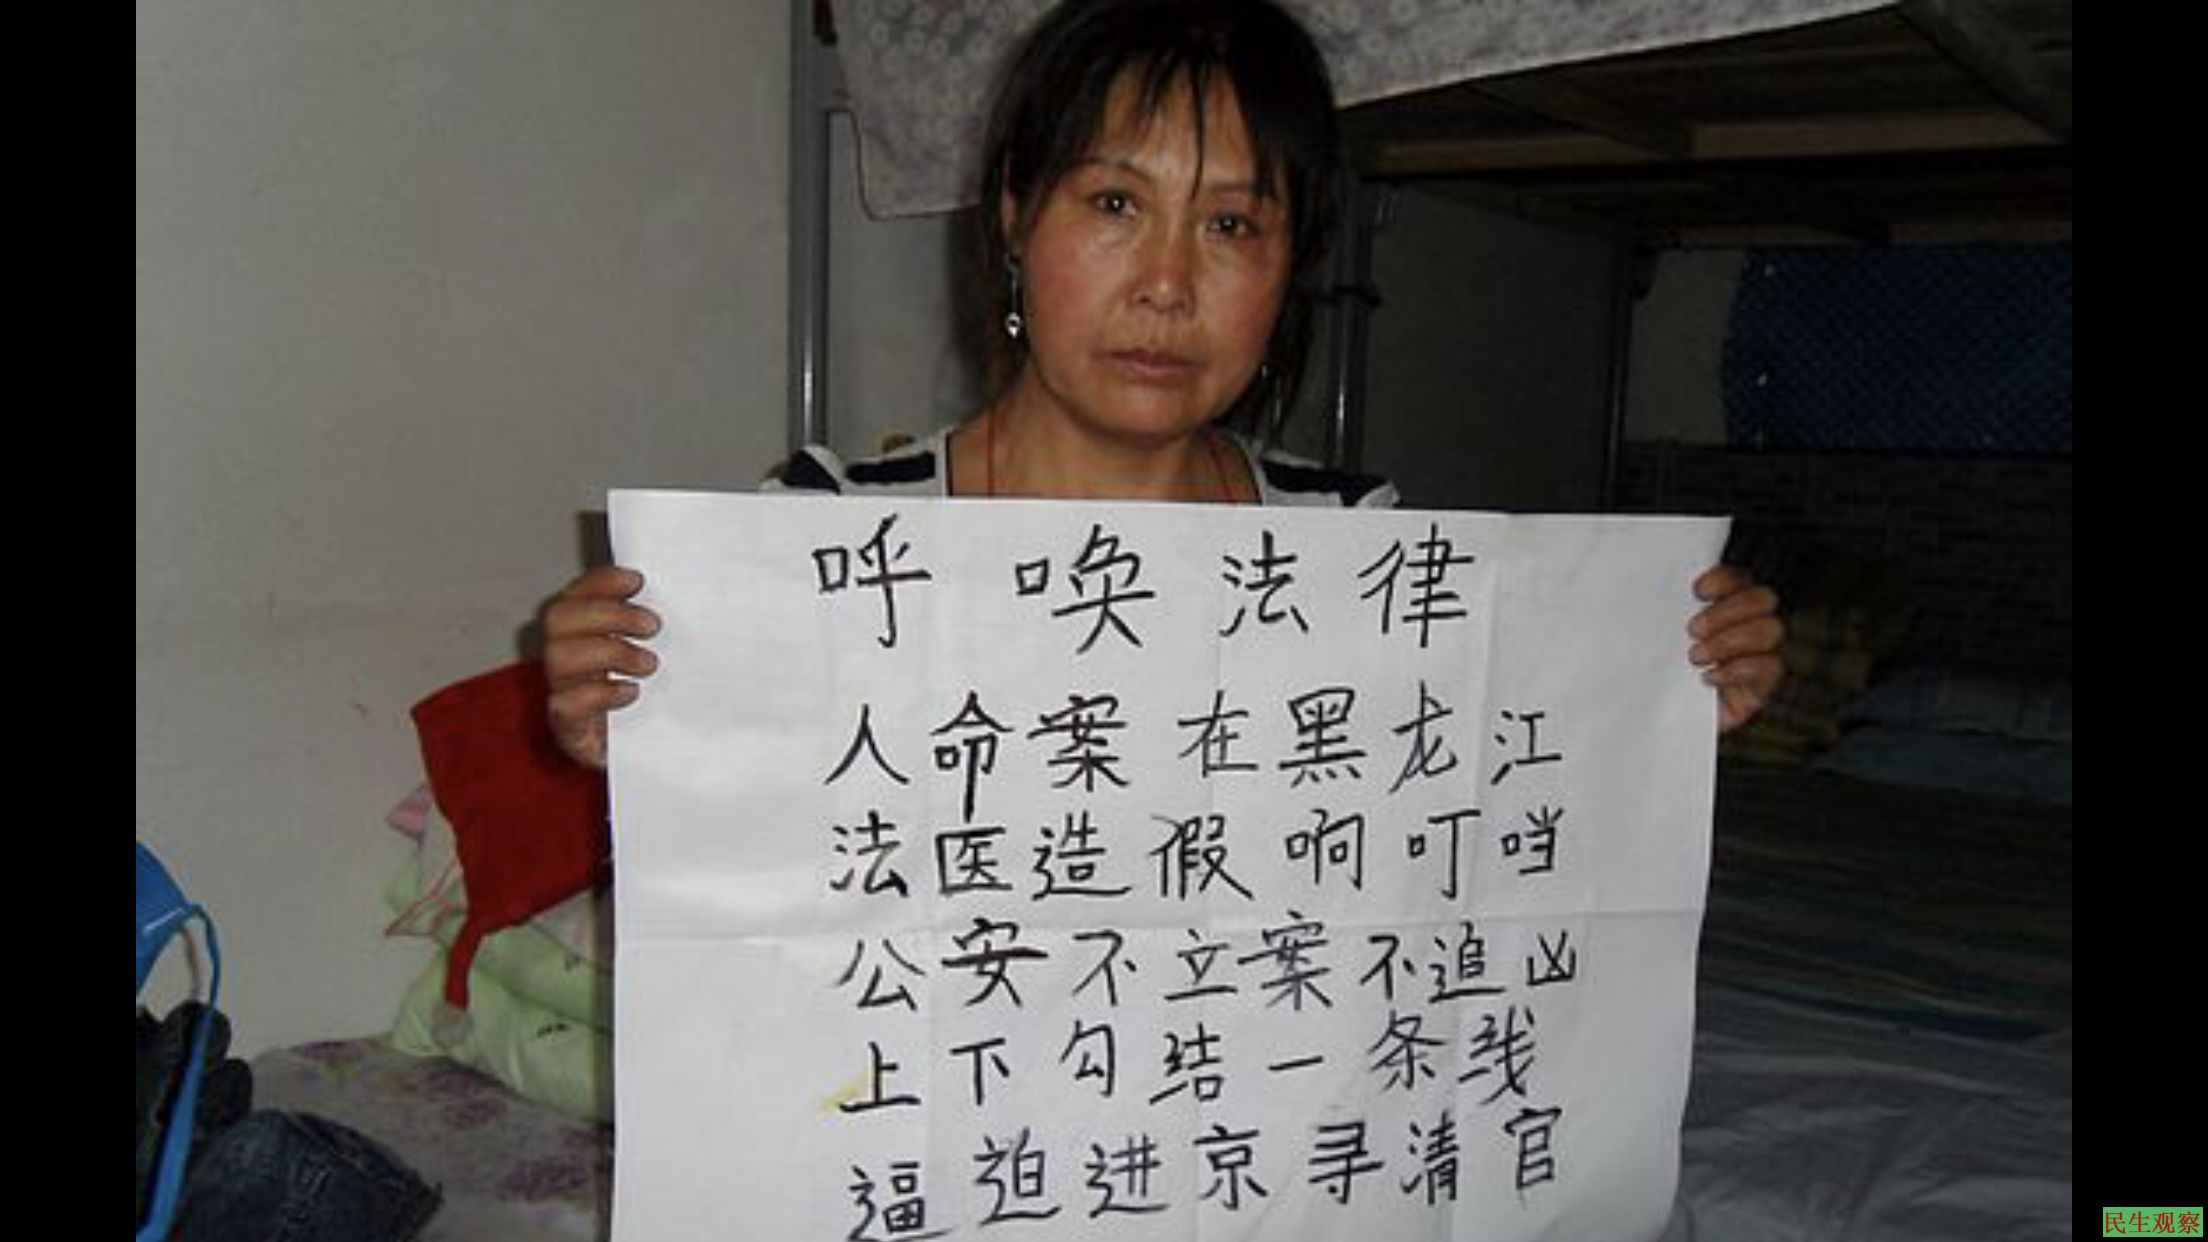 呼唤法律
人命案在黑龙江
法医造假啊叮当
公安不立案不追凶
上下勾结一条线
逼迫进京寻清官
民生观察